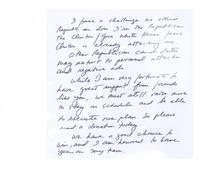 I face a challenge no other
Republican does. I'm the Republican
the Clinton/Gore White House
Clinton is already attacking
Other Republican candidates
may resort to personal attacks
and negative ads.
While I am very fortunate to
have great support from friends
like you, we must still raise more
to stay on schedule and be able
to execute our plan. So please
send a donation today.
We have a good chance to
win, and I am honored to have
you on my team